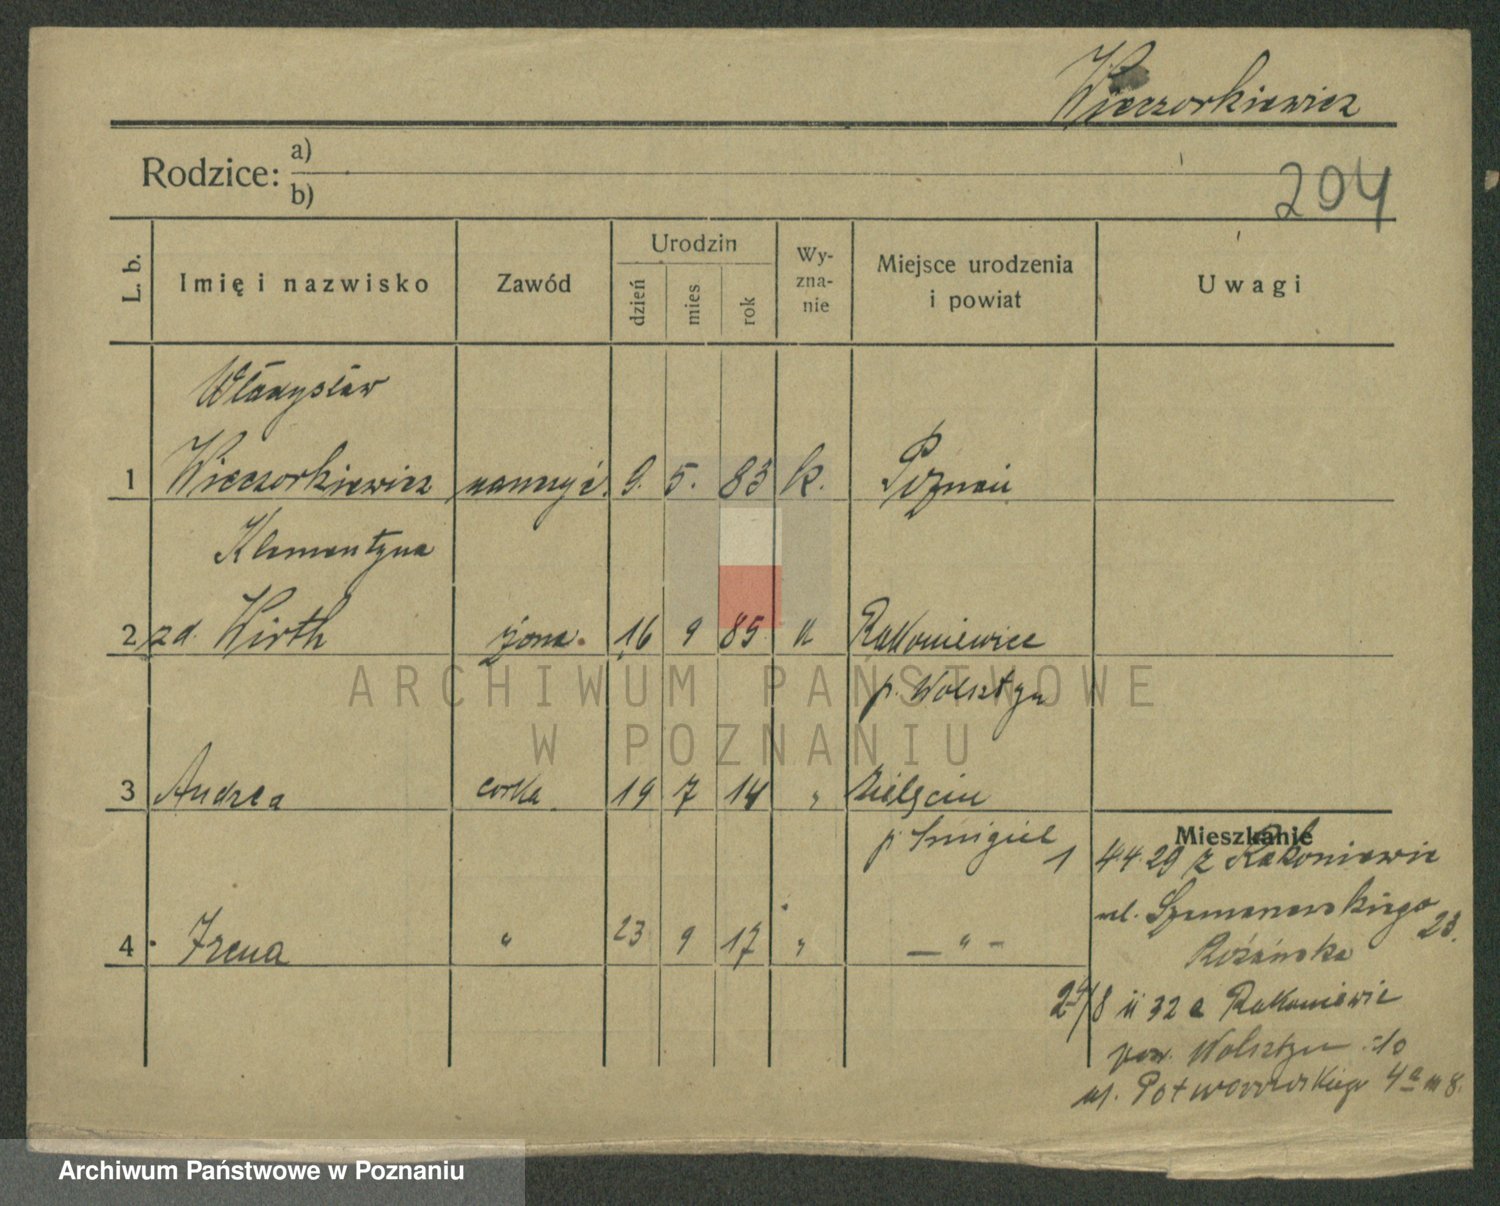 Wieczorkiewicz
Rodzice: a)
b)
204
L. b.
Imię i nazwisko
Zawód
Urodzin
dzień
mies
rok
Wy-
zna-
nie
Miejsce urodzenia
i powiat
Uwagi
Władysław
1 Wieczorkiewicz nauczyc. 9. 5. 83 k. Poznań
Klementyna
2 zd. Wirth żona. 16 9 85 k Rakoniewice
p. Wolsztyn
3 Andrea corka 19 7 14 " Zielęcin
p. Śmigiel
Mieszkanie
1 4.4.29 z Rakoniewic
ul. Szymanowskiego 23.
4 Irena " 23 9 17 " — " —
Różańska
24/8 32 Rakoniewic
pow. Wolsztyn do
ul. Potworowskiego 4a m 8.
ARCHIWUM PAŃSTWOWE
W POZNANIU
Archiwum Państwowe w Poznaniu